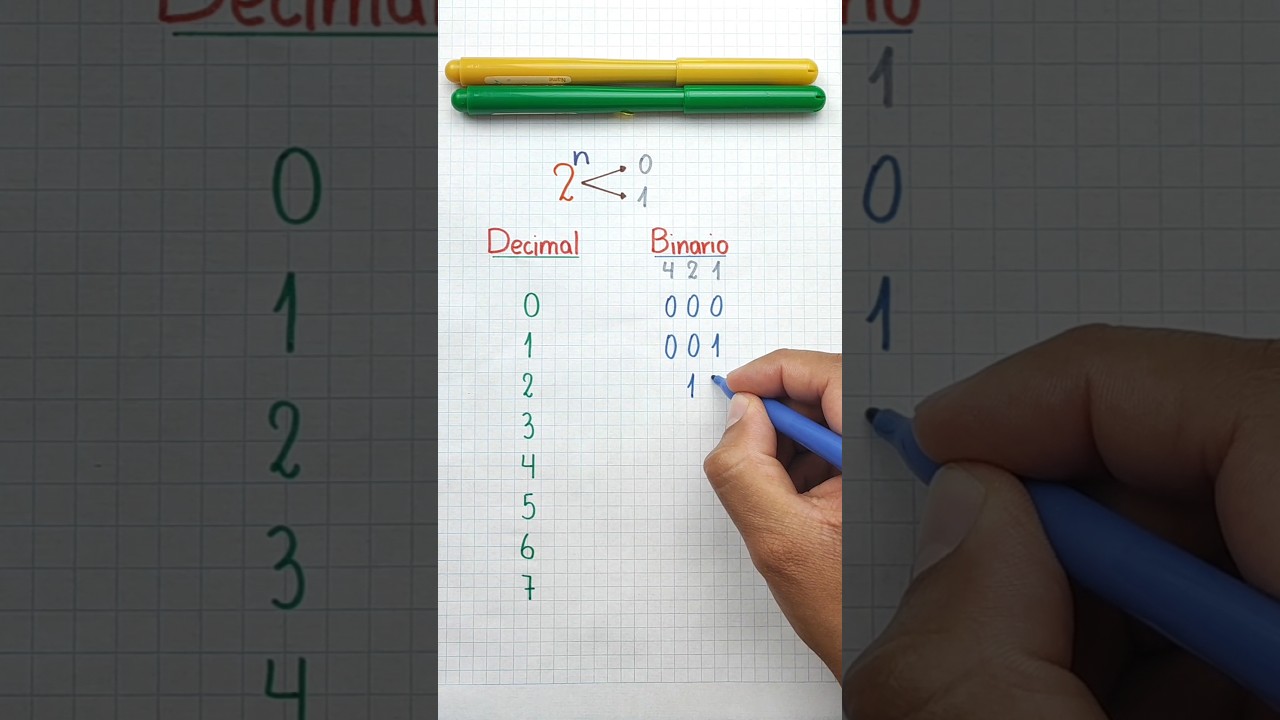 2ⁿ 0
1
Decimal Binario
4 2 1
0 0 0 0
1 0 0 1
2 1
3
4
5
6
7